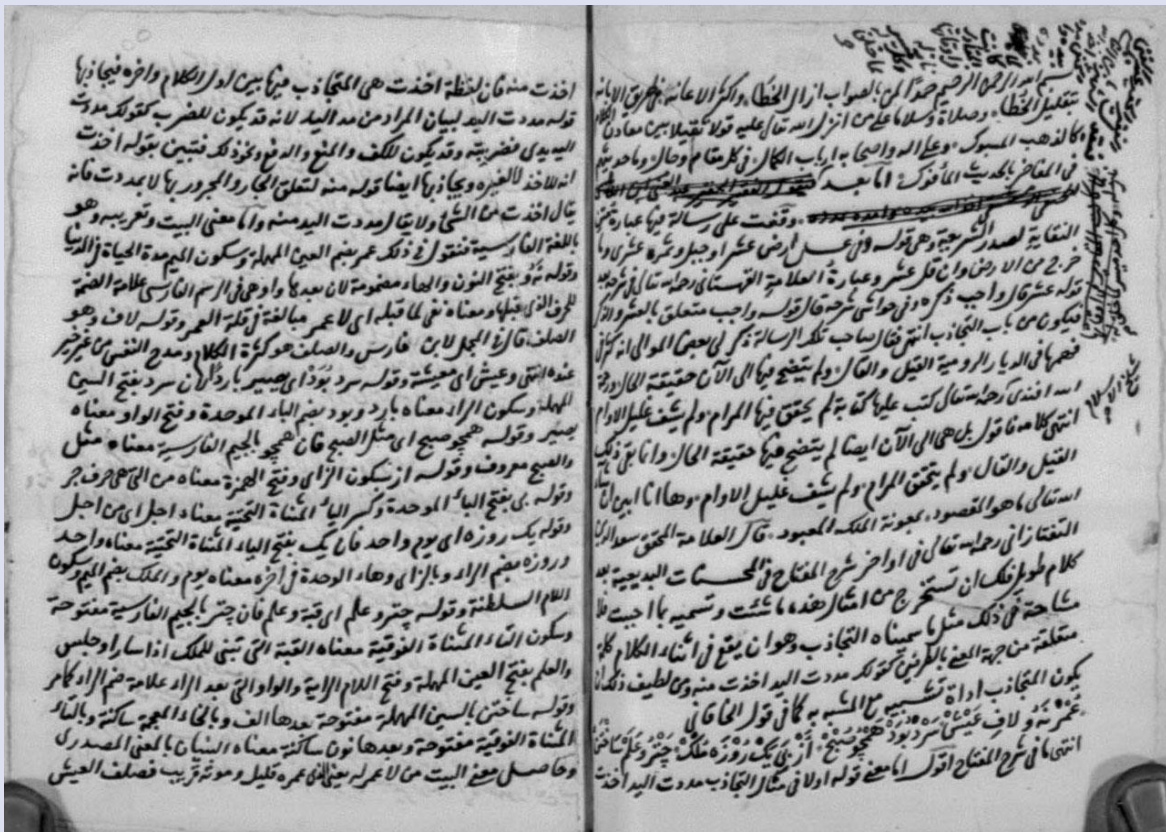 بسم الله الرحمن الرحيم حمدًا لمن بالصواب ازال الخطاء واكثر الاعانه في طرق الابانه
بتقليل الخطاء وصلاة وسلاما على من انزل الله تعالى عليه قولا ثقيلا بين معادن الكلام
كالذهب المسبوك وعلى اله واصحابه ارباب الكمال في كل مقام وحال وما حديثهم
في المفاخر بالحديث المأفوك اما بعد فيقول الفقير الحقير عبد الغني ابن
وقفت على رسالة فيها عبارة متن
النقاية لصدر الشريعة وهي قوله وفي عسل ارض عشر او جبل وثمره عشري وما
خرج من الارض وان قل عشر وعبارة العلامة القهستاني رحمه الله تعالى في شرحه بعد
قوله عشر قال واجب ذكره وفي حواشي شرحه قال قوله واجب متعلق بالعشر والذكر
فيكون من باب التجاذب انتهى فقال صاحب تلك الرسالة ذكر لي بعض الموالي انه كثر في
فهمها في الديار الرومية القيل والقال ولم يتضح فيها الى الآن حقيقة الحال
الله افندي رحمه الله تعالى كتب عليها كتابة لم يحقق فيها المرام ولم يشف غليل الاوام
انتهى كلامه فاقول بل هي الى الآن ايضا لم يتضح فيها حقيقة الحال وانا بقي ذلك
القيل والقال ولم يتحقق المرام ولم يشف غليل الاوام وها انا ابين ان شاء
الله تعالى ما هو المقصود بمعونة الملك المعبود قال العلامة المحقق سعد الدين
التفتازاني رحمه الله تعالى في اواخر شرح المفتاح في المحسنات البديعية بعد
كلام طويل فلك ان تستخرج من امثال هذه ما شئت وتسميه بما احببت فلا
مشاحة في ذلك مثل ما سميناه التجاذب وهو ان يقع في اثناء الكلام كلمة
متعلقة من جهة المعنى بالطرفين كقولك مددت اليد اخذت منه ومن لطيف ذلك ان
يكون المتجاذب اداة تشبيه مع المشبه به كما في قول الخاقاني
عمر نه ولاف عيش سرد بود همچو صبح از پي يك روزه ملك چتر وعلم ساختن
انتهى ما في شرح المفتاح اقول اما معنى قوله اولا في مثال التجاذب مددت اليد اخذت
اخذت منه فان لفظة اخذت هي المتجاذب فيها بين اول الكلام واخره فيجاذبها
قوله مددت اليد لبيان المراد من مد اليد لانه قد يكون للضرب كقولك مددت
اليه يدي فضربته وقد يكون للكف والمنع والدفع ونحو ذلك فتبين بقوله اخذت
انه للاخذ لا لغيره ويجاذبها ايضا قوله منه لتعلق الجار والمجرور بها لا بمددت فانه
يقال اخذت من الشئ ولا يقال مددت اليد منه واما معنى البيت وتعريبه وهو
باللغة الفارسية فنقول في ذلك عمر بضم العين المهملة وسكون الميم مدة الحياة في الدنيا
وقوله نه و بفتح النون والهاء مضمومة لان بعدها واو هي في الرسم الفارسي علامة الضمة
للحرف الذي قبلها ومعناه نفي لما قبله اي لا عمر مبالغة في قلة العمر وقوله لاف وهو
الصلف قال في المجمل لابن فارس والصلف هو كثرة الكلام ومدح النفس من غير خير
عنده انتهى وعيش اي معيشة وقوله سرد بود اي يصير باردا لان سرد بفتح السين
المهملة وسكون الراء معناه بارد وبود بضم الباء الموحدة وفتح الواو معناه
يصير وقوله همچو صبح اي مثل الصبح فان همچو بالجيم الفارسية معناه مثل
والصبح معروف وقوله از بسكون الزاي وفتح الهمزة معناه من التي هي حرف جر
وقوله پي بفتح الباء الموحدة وكسر الياء المثناة التحتية معناه اجل اي من اجل
وقوله يك روزه اي يوم واحد فان يك بفتح الياء المثناة التحتية معناه واحد
وروزه بضم الراء وبالزاي وهاء الوحدة في آخره معناه يوم والملك بضم الميم وسكون
اللام السلطنة وقوله چتر وعلم اي قبة وعلم فان چتر بالجيم الفارسية مفتوحة
وسكون التاء المثناة الفوقية معناه القبة التي تبنى للملك اذا سار او جلس
والعلم بفتح العين المهملة وفتح اللام الراية والواو التي بعد الراء علامة ضم الراء كما مر
وقوله ساختن بالسين المهملة مفتوحة بعدها الف وبالخاء المعجمة ساكنة وبالتاء
المثناة الفوقية مفتوحة وبعدها نون ساكنة معناه البنيان بالمعنى المصدري
وحاصل معنى البيت من لا عمر له يعني ان عمره قليل وموته قريب فصلف العيش